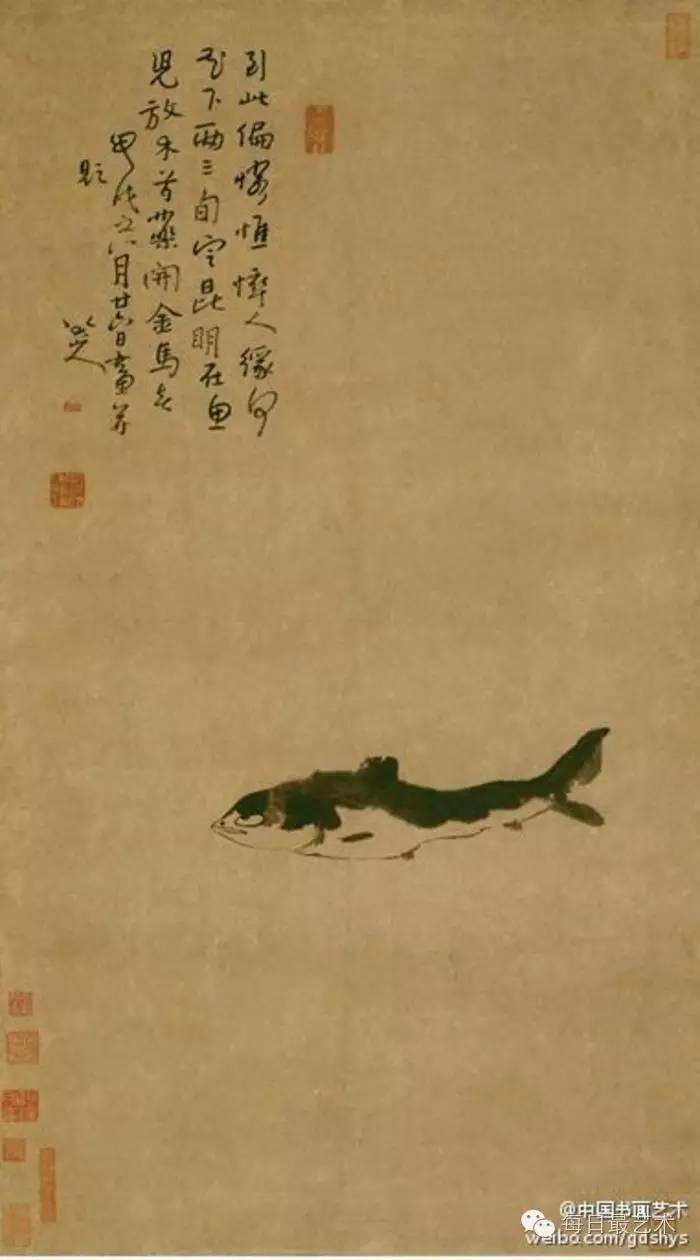 到此偏憐憔悴人緣何
花下兩三旬定昆明在魚
兒放木芍藥開金馬春
甲戌之月廿六日畫并
題
八大山人
@中国书画艺术
每日最艺术
weibo.com/gdshys